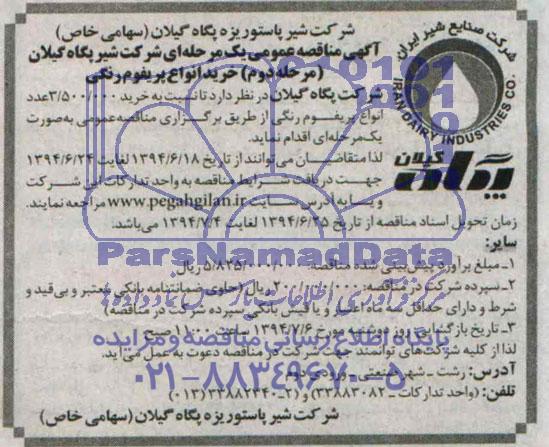 شرکت شیر پاستوریزه پگاه گیلان (سهامی خاص)
آگهی مناقصه عمومی یک مرحله‌ای شرکت شیر پگاه گیلان
(مرحله دوم) خرید انواع پریفورم رنگی
شرکت صنایع شیر ایران
IRAN DAIRY INDUSTRIES CO.
پگاه گیلان
شرکت پگاه گیلان در نظر دارد تا نسبت به خرید ۳/۵۰۰/۰۰۰ عدد
انواع پریفورم رنگی از طریق برگزاری مناقصه عمومی به‌صورت
یک مرحله‌ای اقدام نماید.
لذا متقاضیان می‌توانند از تاریخ ۱۳۹۴/۶/۱۸ لغایت ۱۳۹۴/۶/۲۴
جهت دریافت شرایط مناقصه به واحد تدارکات این شرکت
و یا به آدرس سایت www.pegahgilan.ir مراجعه نمایند.
زمان تحویل اسناد مناقصه از تاریخ ۱۳۹۴/۶/۲۵ لغایت ۱۳۹۴/۷/۴ می‌باشد.
سایر:
۱- مبلغ برآورد پیش‌بینی شده مناقصه: ریال
۲- سپرده شرکت در مناقصه: ریال (حاوی ضمانتنامه بانکی معتبر و بی‌قید و
شرط و دارای حداقل سه ماه اعتبار و یا فیش بانکی سپرده شرکت در مناقصه)
۳- تاریخ بازگشایی: روز دوشنبه مورخ ۱۳۹۴/۷/۶ ساعت ۱۱:۰۰ صبح
لذا از کلیه شرکت‌های توانمند جهت شرکت در مناقصه دعوت به عمل می‌آید.
آدرس: رشت - شهر صنعتی - ورودی دوم
تلفن: (واحد تدارکات - ۳۳۸۸۳۰۸۲) و (۲-۳۳۸۸۲۴۴۰) (۰۱۳)
شرکت شیر پاستوریزه پگاه گیلان (سهامی خاص)
ParsNamadData
مرکز فرآوری اطلاعات پارس نماد داده‌ها
پایگاه اطلاع رسانی مناقصه و مزایده
۰۲۱-۸۸۳۴۹۶۷۰-۵